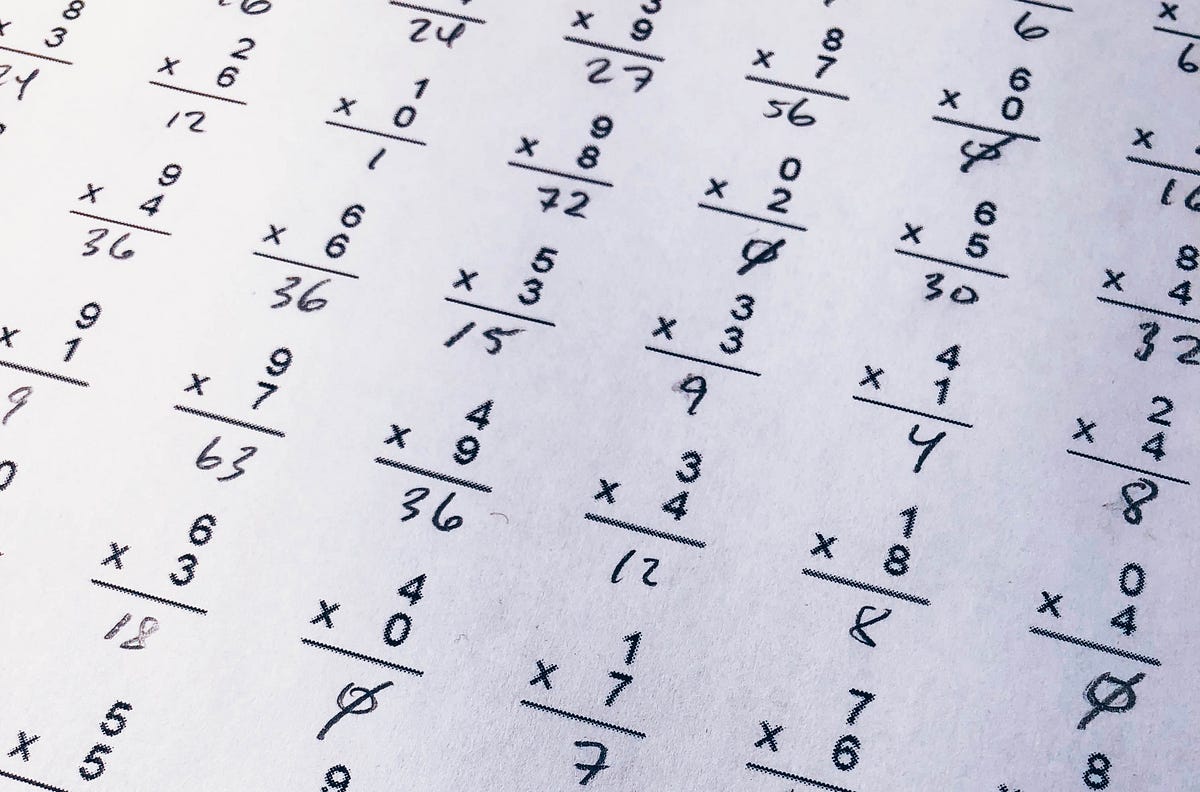 6
x
6
24
3
x 9
27
8
x 7
56
6
x 0
0
x
16
8
x 3
24
2
x 6
12
1
x 0
1
9
x 8
72
0
x 2
0
6
x 5
30
8
x 4
32
9
x 4
36
6
x 6
36
5
x 3
15
3
x 3
9
4
x 1
4
2
x 4
8
9
x 1
9
9
x 7
63
4
x 9
36
3
x 4
12
1
x 8
8
0
x 4
0
6
x 3
18
4
x 0
0
1
x 7
7
7
x 6
8
5
x 5
9